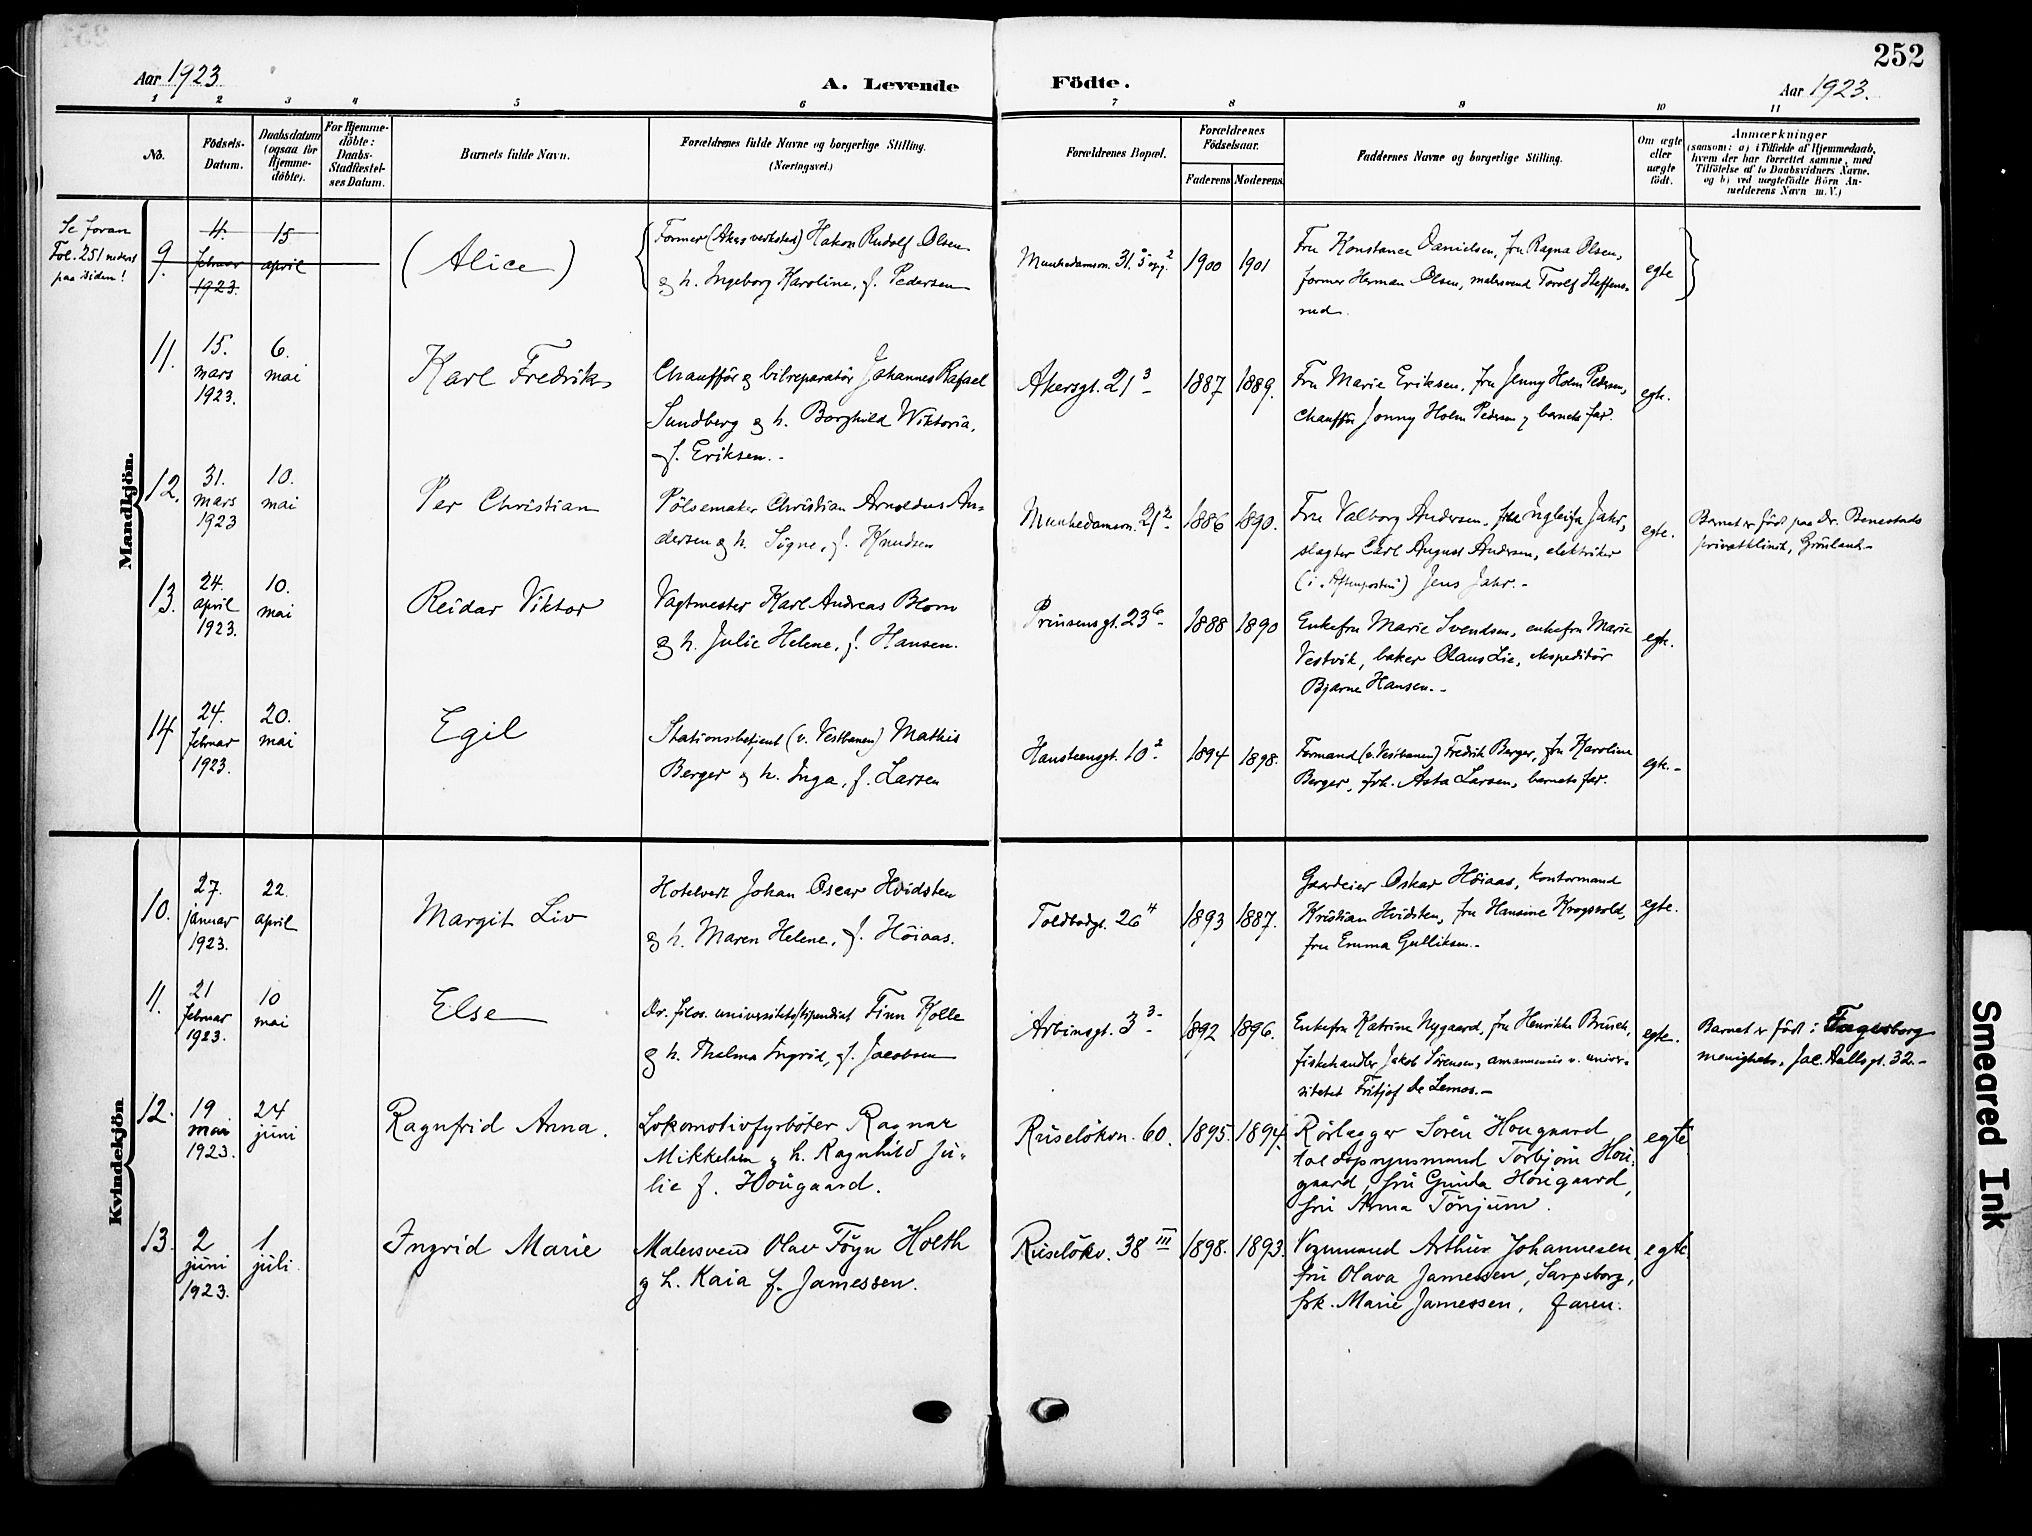 252
Aar 1923.
A. Levende Födte.
Aar 1923.
1 2 3 4 5 6 7 8 9 10 11
No.
Födsels-Datum.
Daabsdatum (ogsaa for Hjemme-döbte).
For Hjemme-döbte: Daabs-Stadfæstel-ses Datum.
Barnets fulde Navn.
Forældrenes fulde Navne og borgerlige Stilling. (Næringsvei.)
Forældrenes Bopæl.
Forældrenes Födselsaar.
Faderens Moderens
Faddernes Navne og borgerlige Stilling.
Om ægte eller uægte födt.
Anmærkninger
(saasom: a) i Tilfælde af Hjemmedaab,
hvem der har forrettet samme, med
Tilföielse af to Daabsvidners Navne.
og b) ved uægtefödte Börn An-
melderens Navn m. V.)
Mandkjön.
Se foran
Fol. 251 nederst
paa siden!
9.
4. februar 1923.
15 april
(Alice)
Former (Akers verksted) Hakon Rudolf Olsen
og h. Ingeborg Karoline, f. Pedersen
Munkedamsvn. 31. 5 opg. 2
1900 1901
Fru Konstance Danielsen, fru Ragna Olsen,
former Herman Olsen, malersvend Torolf Steffens-
rud.
egte
11.
15. mars 1923.
6. mai
Karl Fredrik
Chaufför og bilreparatör Johannes Rafael
Sundberg og h. Borghild Viktoria,
f. Eriksen.-
Akersgt. 21 3
1887 1889.
Fru Marie Eriksen, fru Jenny Holm Pedersen,
chaufför Jonny Holm Pedersen og barnets far.
egte.
12.
31. mars 1923
10. mai
Per Christian
Pölsemaker Christian Arnoldus An-
dersen og h. Signe, f. Knudsen
Munkedamsvn. 21 2
1886 1890.
Fru Valborg Andersen, Jahr,
slagter Carl August Andersen, elektriker
(i "Aftenposten") Jens Jahr.-
egte.
Barnet er födt paa Dr. Benestads
privatklinik, Grönland.-
13.
24. april 1923.
10. mai
Reidar Viktor
Vagtmester Karl Andreas Blom
og h. Julie Helene, f. Hansen.
Prinsensgt. 23 6
1888 1890
Enkefru Marie Svendsen, enkefru Marie
Vestvik, baker Olaus Lie, ekspeditör
Bjarne Hansen.-
egte.
14
24. februar 1923.
20. mai
Egil
Stationsbetjent (v. Vestbanen) Mathis
Berger og h. Inga, f. Larsen
Hansteensgt. 10 2
1894 1898.
Formand (v. Vestbanen) Fredrik Berger, fru Karoline
Berger, frk. Asta Larsen, barnets far.
egte.-
Kvindekjön
10.
27. januar 1923.
22. april
Margit Liv
Hotelvert Johan Oscar Hvidsten
og h. Maren Helene, f. Höiaas.
Toldbodgt. 26 4
1893 1887.
Gaardeier Oskar Höiaas, kontormand
Kristian Hvidsten, fru Hansine Krogsvold,
fru Emma Gulliksen.-
egte.
11.
21 februar 1923.
10 mai
Else
Dr. filos. universitetsstipendiat Finn Kolle
og h. Thelma Ingrid, f. Jacobsen
Arbinsgt. 3 3
1892 1896.
Enkefru Katrine Nygaard, fru Henrikke Brusch,
fiskehandler Jakob Sörensen, amanuensis v. univer-
sitetet Fritjof de Lemos.-
egte.
Barnet er födt i Fagerborg
menighet, Jac. Aallsgt. 32.-
12.
19 mai 1923.
24 juni
Ragnfrid Anna.
Lokomotivfyrböter Ragnar
Mikkelsen og h. Ragnhild Ju-
lie f. Hougaard.
Ruselökvn. 60.
1895. 1894.
Rörlægger Sören Hougaard
Torbjörn Hou-
gaard, fru Gunda Hougaard,
fru Anna Tönjum.
egte
13.
2 juni 1923.
1 juli
Ingrid Marie
Malersvend Olav Föyn Holth
og h. Kaia f. Jamessen.
Ruselökv. 38 III
1898. 1893.
Vognmand Arthur Johannesen,
fru Olava Jamessen, Sarpsborg,
frk. Marie Jamessen, faren.
egte.
Smeared Ink